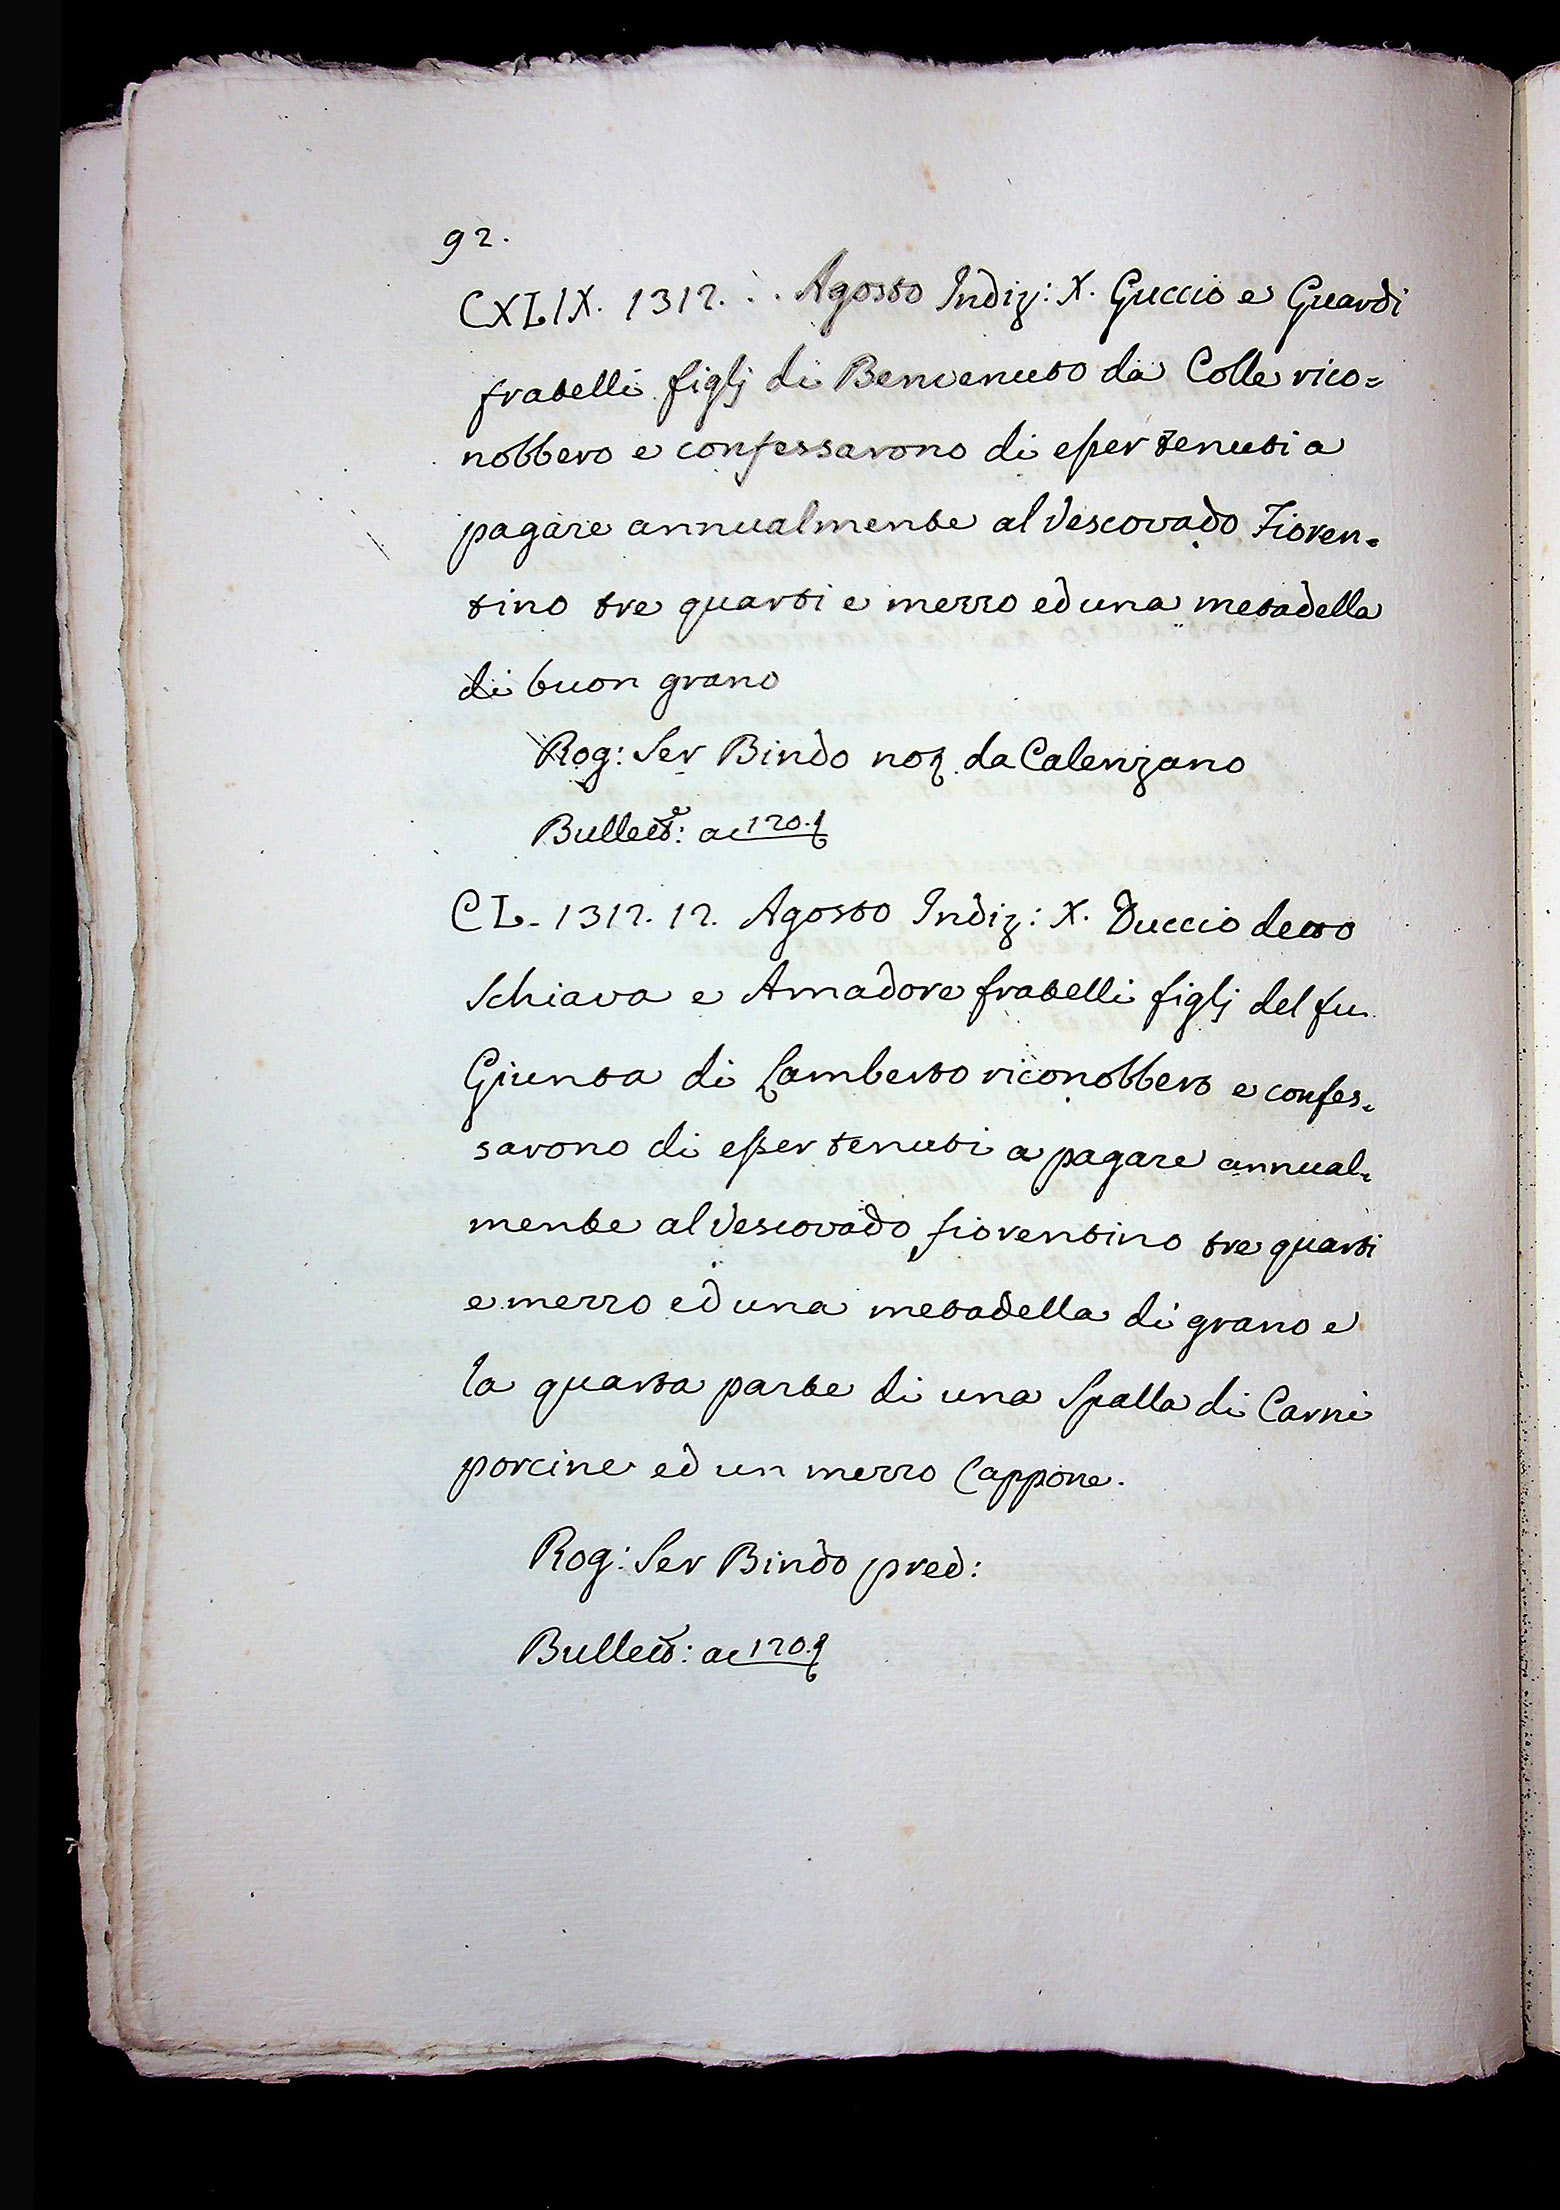 92.
CXLIX. 1312. . . Agosto Indiz: X. Guccio e Guardi
fratelli figlj di Benvenuto da Colle rico=
nobbero e confessarono di esser tenuti a
pagare annualmente al Vescovado Fioren=
tino tre quarti e mezzo ed una metadella
di buon grano
Rog: Ser Bindo not. da Calenzano
Bullett: ac 120.
CL. 1312. 12. Agosto Indiz: X. Duccio detto
Schiava e Amadore fratelli figlj del fu
Giunta di Lamberto riconobbero e confes=
sarono di esser tenuti a pagare annual=
mente al Vescovado fiorentino tre quarti
e mezzo ed una metadella di grano e
la quarta parte di una Spalla di Carni
porcine ed un mezzo Cappone.
Rog: Ser Bindo pred:
Bullett: ac 120.